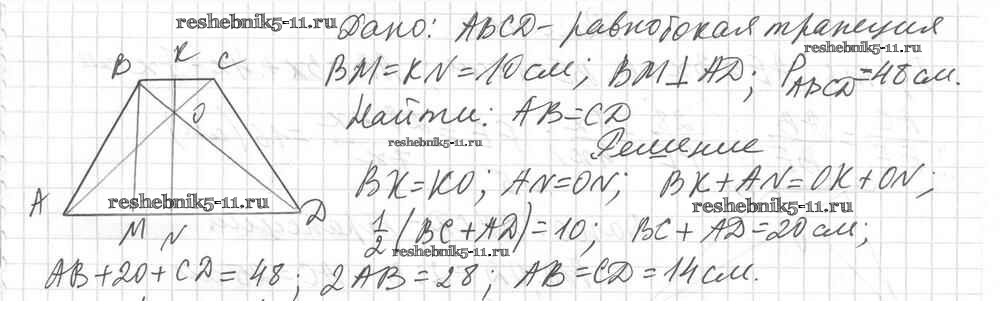 reshebnik5-11.ru
Дано: ABCD - равнобокая трапеция
reshebnik5-11.ru
BM=KN=10см; BM⊥AD; P_ABCD=48см.
Найти: AB=CD
reshebnik5-11.ru
Решение
BK=KO; AN=ON; BK+AN=OK+ON;
reshebnik5-11.ru
1/2(BC+AD)=10; BC+AD=20см;
reshebnik5-11.ru
AB+20+CD=48; 2AB=28; AB=CD=14см.
B K C
O
A D
reshebnik5-11.ru
M N